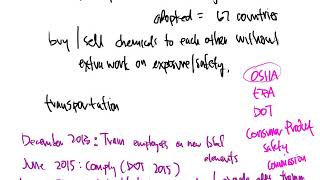 adopted = 67 countries
buy / sell chemicals to each other without
extra work on exposure/safety.
transportation
OSHA
EPA
DOT
Consumer Product
Safety
Commission
December 2013: Train employees on new label
elements
June 2015: Comply (DOT 2015)